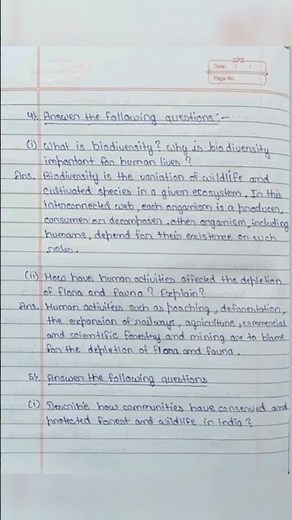 Date: / /
Page No.
4). Answer the following questions :-
(i) What is biodiversity? Why is biodiversity
important for human lives?
Ans. Biodiversity is the variation of wildlife and
cultivated species in a given ecosystem. In this
interconnected web, each organism is a producer,
consumer or decomposer. other organism, including
humans, depend for their existence on such
roles.
(ii) How have human activities affected the depletion
of flora and fauna? Explain?
Ans. Human activities such as poaching, deforestation,
the expansion of railways, agriculture, commercial
and scientific forestry and mining are to blame
for the depletion of flora and fauna.
5). Answer the following questions
(i) Describe how communities have conserved and
protected forest and wildlife in India?